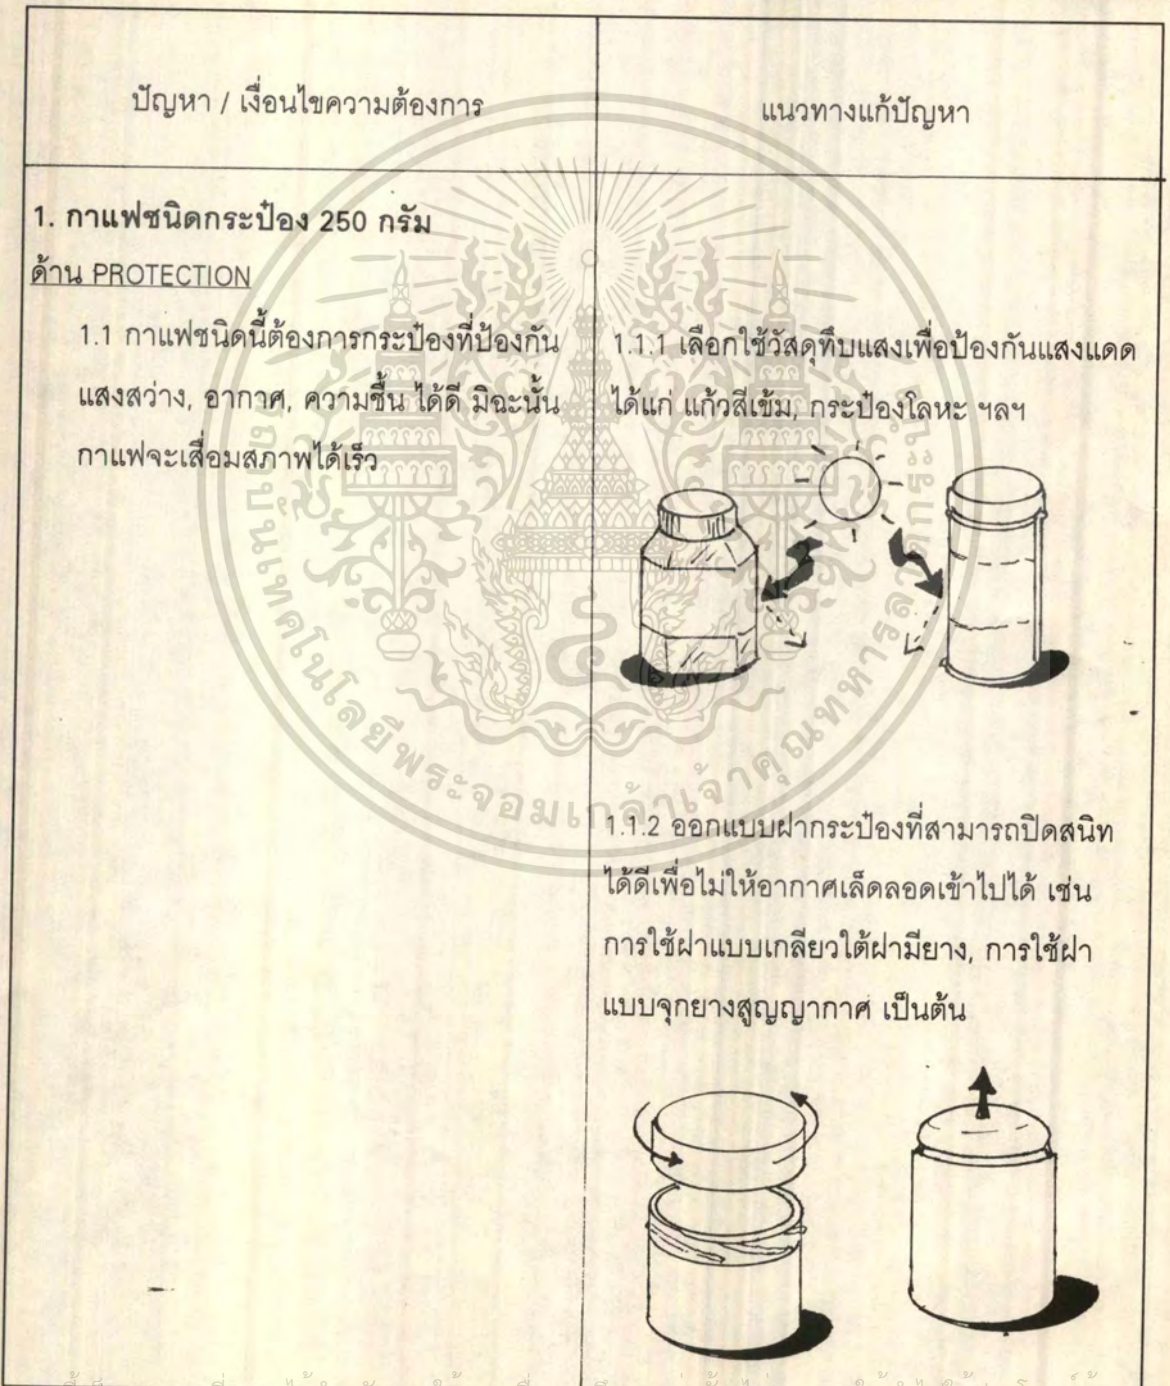 ปัญหา / เงื่อนไขความต้องการ
แนวทางแก้ปัญหา
1. กาแฟชนิดกระป๋อง 250 กรัม
ด้าน PROTECTION
1.1 กาแฟชนิดนี้ต้องการกระป๋องที่ป้องกัน
แสงสว่าง, อากาศ, ความชื้น ได้ดี มิฉะนั้น
กาแฟจะเสื่อมสภาพได้เร็ว
1.1.1 เลือกใช้วัสดุทึบแสงเพื่อป้องกันแสงแดด
ได้แก่ แก้วสีเข้ม, กระป๋องโลหะ ฯลฯ
1.1.2 ออกแบบฝากระป๋องที่สามารถปิดสนิท
ได้ดีเพื่อไม่ให้อากาศเล็ดลอดเข้าไปได้ เช่น
การใช้ฝาแบบเกลียวใต้ฝามียาง, การใช้ฝา
แบบจุกยางสูญญากาศ เป็นต้น
สถาบันเทคโนโลยีพระจอมเกล้าเจ้าคุณทหารลาดกระบัง